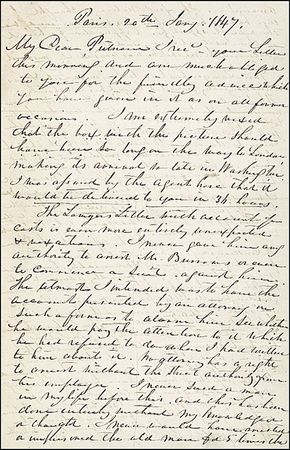 Paris. 20th Jany. 1847.
My Dear Putnam I rec your Letter
this morning and am much obliged
to you for the friendly advice which
you have given in it as on all former
occasions. I am extremely vexed
that the box with the picture should
have been so long on the way to London
making its arrival so late in Washington
I was assured by the agent here that it
would be delivered to you in 36 hours.
The Lawyers Letter with account of
costs is even more entirely unexpected
& vexatious. I never gave him any
authority to arrest Mr. or even
to commence a suit against him.
The utmost I intended was to have the
account presented by an attorney in
such a form as to alarm him & see whether
he would pay the attention to it which
he had refused to do when I had written
to him about it. No attorney has a right
to arrest without the strict authority from
his employer. I never sued a man
in my life before this, and this has been
done entirely without my knowledge
or thought. I never would have arrested
or imprisoned the old man for 5 times the